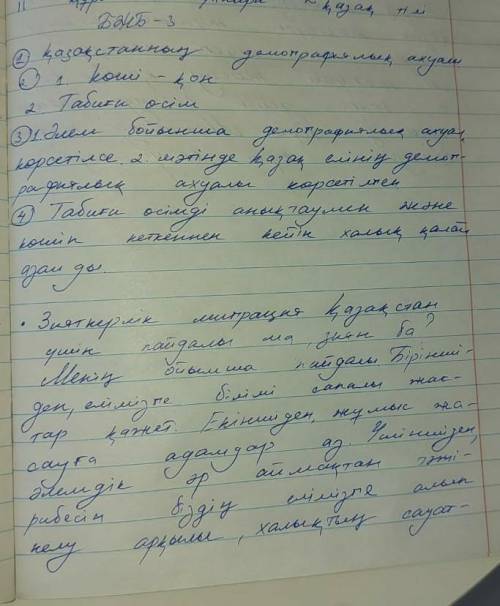 қазақ тілі
БЖБ - 3
② Қазақстанның демографиялық ахуалы
1 Көші - қон
2 Табиғи өсім
③ 1 Әлем бойынша демографиялық ахуал
көрсетілсе, 2 мәтінде қазақ елінің демог-
рафиялық ахуалы көрсетілген
④ Табиғи өсімді анықтаумен және
көшіп кеткеннен кейін халық қалай
азайды.
• Зияткерлік миграция Қазақстан
үшін пайдалы ма, зиян ба?
Менің ойымша пайдалы. Бірінші-
ден, елімізге білімі сапалы жас-
тар қажет. Екіншіден, жұмыс жа-
сауға адамдар аз. Үшіншіден,
әлемдік әр аймақтан тәжі-
рибесін біздің елімізге алып
келу арқылы, халықтың сауат-